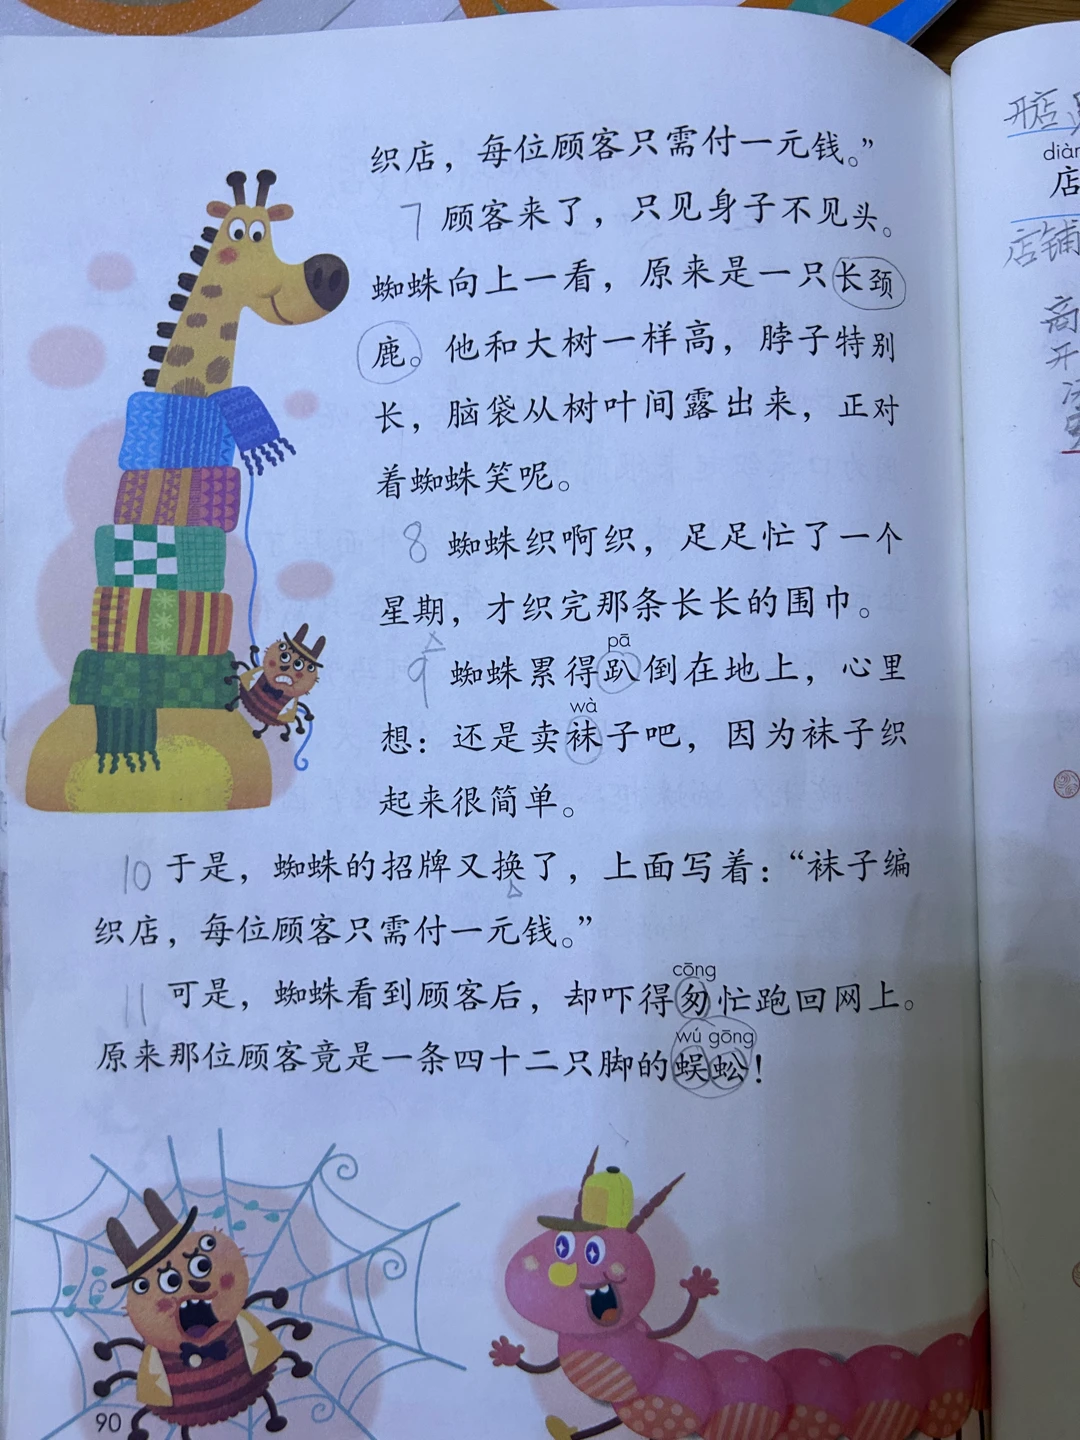 织店，每位顾客只需付一元钱。”
7 顾客来了，只见身子不见头。
蜘蛛向上一看，原来是一只长颈
鹿。他和大树一样高，脖子特别
长，脑袋从树叶间露出来，正对
着蜘蛛笑呢。
8 蜘蛛织啊织，足足忙了一个
星期，才织完那条长长的围巾。
pā
9 蜘蛛累得趴倒在地上，心里
wà
想：还是卖袜子吧，因为袜子织
起来很简单。
10 于是，蜘蛛的招牌又换了，上面写着：“袜子编
织店，每位顾客只需付一元钱。”
cōng
11 可是，蜘蛛看到顾客后，却吓得匆忙跑回网上。
wú gōng
原来那位顾客竟是一条四十二只脚的蜈蚣！
90
开店
diàn
店
店铺
商
开